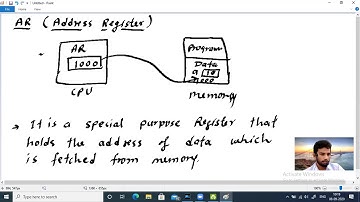 AR (Address Register)
AR
1000
CPU
Program
Data
a 10
1000
memory
→ It is a special purpose Register that
holds the address of data which
is fetched from memory.
Activate Windows
Type here to search